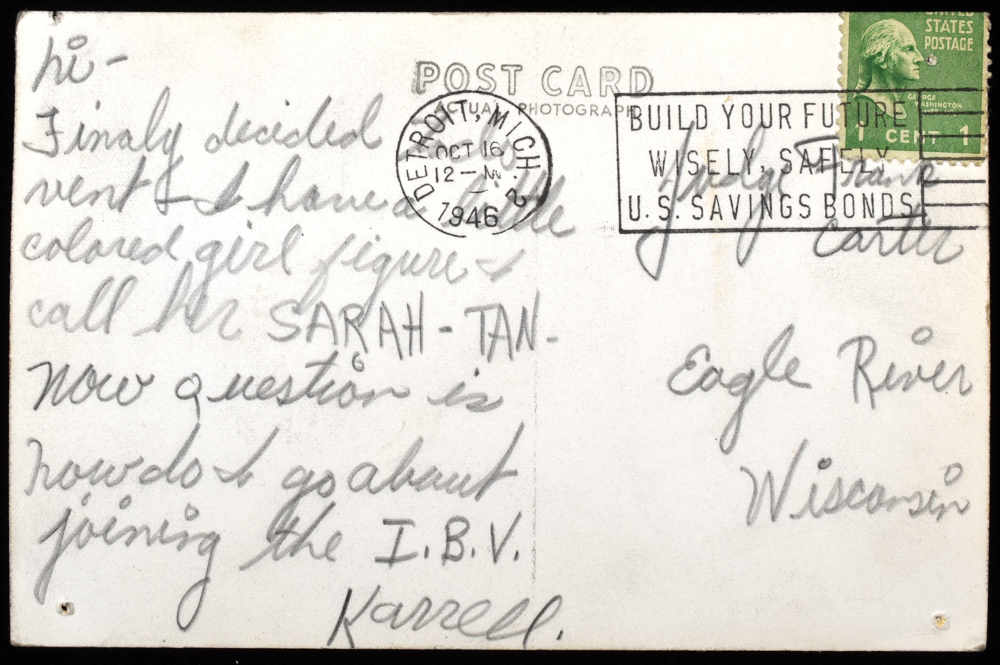 hi-
Finaly decided to do
vent & I have a little
colored girl figure &
call her SARAH-TAN-
Now question is
how do I go about
joining the I.B.V.
Karrell.
POST CARD
ACTUAL PHOTOGRAPH
DETROIT, MICH.
OCT 16
12-M
1946
2
BUILD YOUR FUTURE
WISELY, SAFELY
U.S. SAVINGS BONDS
UNITED
STATES
POSTAGE
GEORGE
WASHINGTON
1 CENT 1
Judge Frank
Carter
Eagle River
Wisconsin